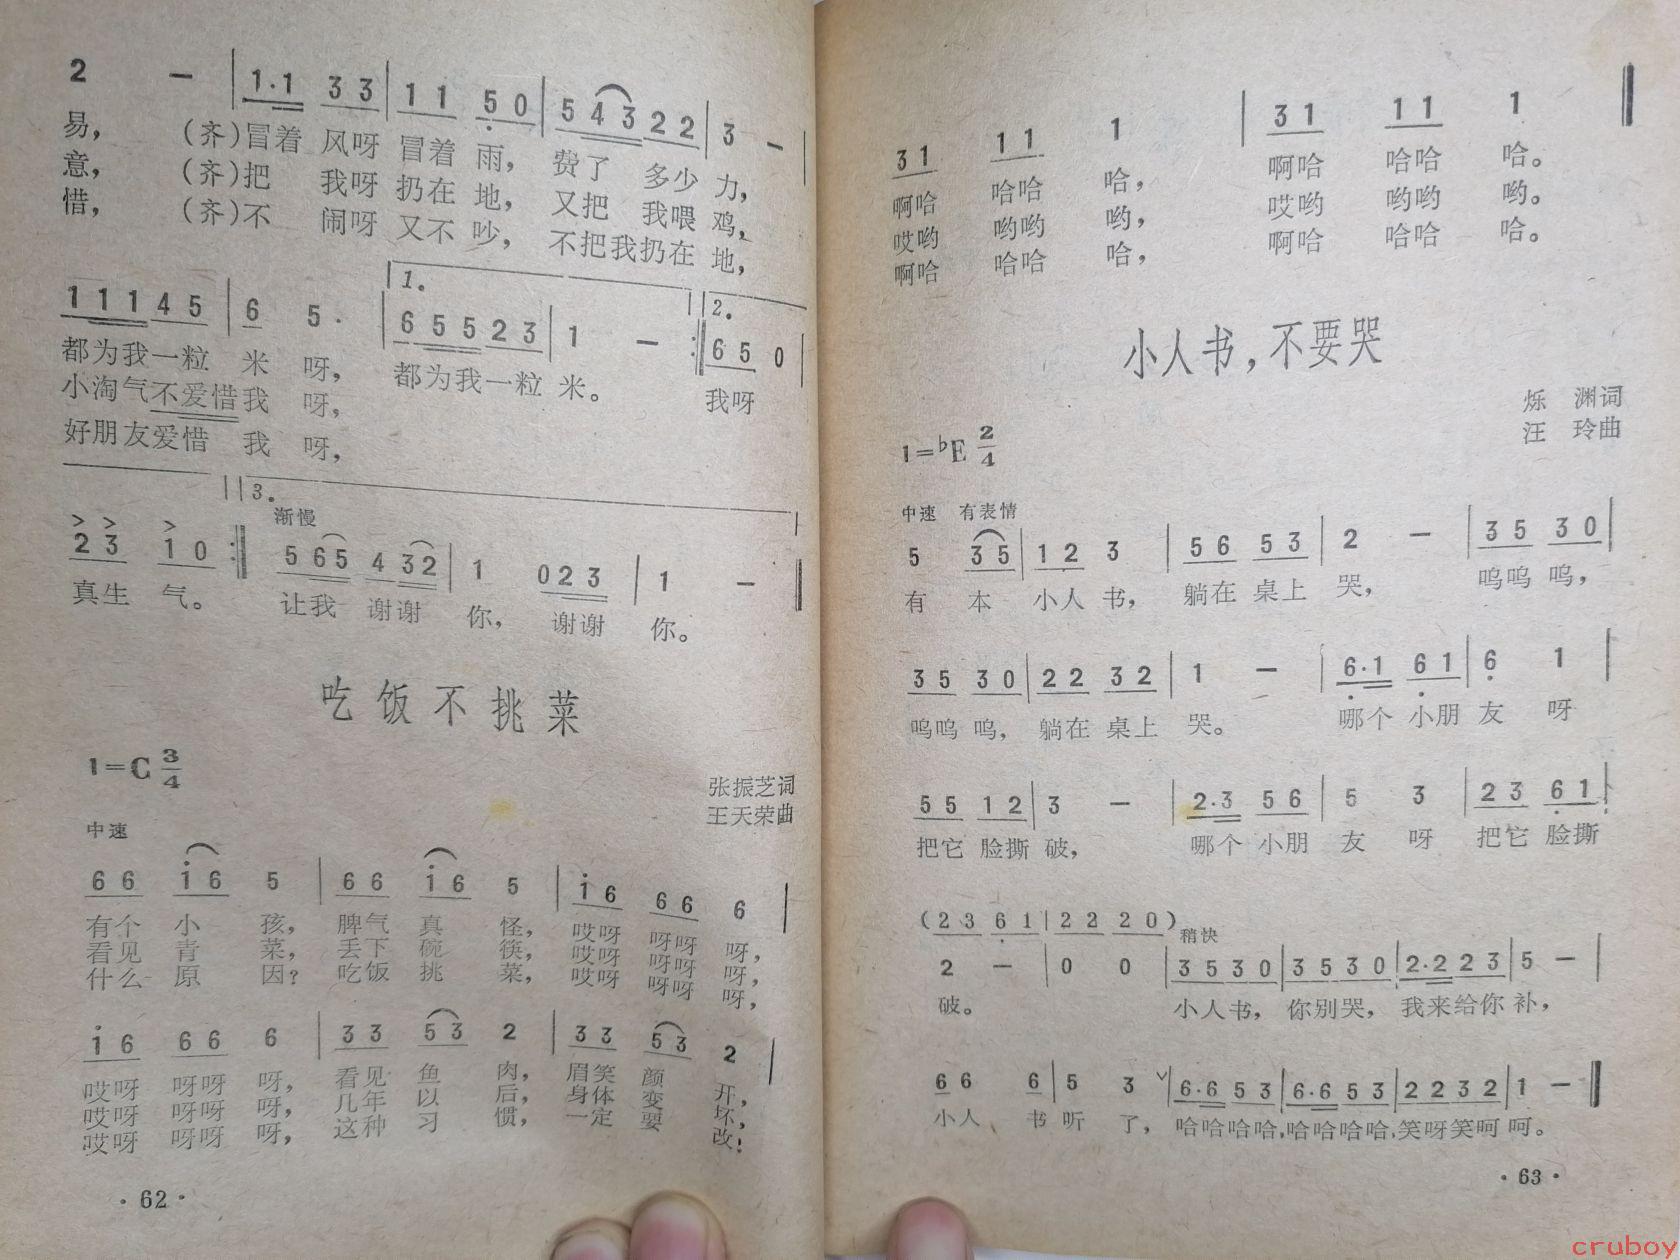 2 — | 1·1 3 3 | 1 1 5 0 | 5 4 3 2 2 | 3 — |
易， (齐)冒着 风呀 冒着 雨， 费了 多少 力，
意， (齐)把 我呀 扔在 地， 又把 我喂 鸡，
惜， (齐)不 闹呀 又不 吵， 不把我扔在 地，
1. 2.
1 1 1 4 5 | 6 5 · | 6 5 5 2 3 | 1 — :‖ 6 5 0 |
都为我一粒 米 呀， 都为我一粒 米。 我呀
小淘气不爱惜我 呀，
好朋友爱惜 我 呀，
3.
渐慢
2 3 1 0 :‖ 5 6 5 4 3 2 | 1 0 2 3 | 1 — ‖
真生 气。 让我 谢谢 你， 谢谢 你。
吃饭不挑菜
1=C 3/4
张振芝词
王天荣曲
中速
6 6 1 6 5 | 6 6 1 6 5 | 1 6 6 6 6 |
有个 小 孩， 脾气 真 怪， 哎呀 呀呀 呀，
看见 青 菜， 丢下 碗 筷， 哎呀 呀呀 呀，
什么 原 因？ 吃饭 挑 菜， 哎呀 呀呀 呀，
1 6 6 6 6 | 3 3 5 3 2 | 3 3 5 3 2 |
哎呀 呀呀 呀， 看见 鱼 肉， 眉笑 颜 开，
哎呀 呀呀 呀， 几年 以 后， 身体 变 坏，
哎呀 呀呀 呀， 这种 习 惯， 一定 要 改！
· 62 ·
3 1 1 1 1 | 3 1 1 1 1 ‖
啊哈 哈哈 哈， 啊哈 哈哈 哈。
哎哟 哟哟 哟， 哎哟 哟哟 哟。
啊哈 哈哈 哈， 啊哈 哈哈 哈。
小人书，不要哭
烁 渊词
汪 玲曲
1=♭E 2/4
中速 有表情
5 3 5 | 1 2 3 | 5 6 5 3 | 2 — | 3 5 3 0 |
有 本 小人 书， 躺在 桌上 哭， 呜呜 呜，
3 5 3 0 | 2 2 3 2 | 1 — | 6·1 6 1 | 6 1 |
呜呜 呜， 躺在 桌上 哭。 哪个 小朋 友 呀
5 5 1 2 | 3 — | 2·3 5 6 | 5 3 | 2 3 6 1 |
把它 脸撕 破， 哪个 小朋 友 呀 把它 脸撕
(2 3 6 1 | 2 2 2 0) 稍快
2 — | 0 0 | 3 5 3 0 | 3 5 3 0 | 2·2 2 3 | 5 — |
破。 小人书， 你别哭， 我来给你 补，
6 6 6 | 5 3 ∨ | 6·6 5 3 | 6·6 5 3 | 2 2 3 2 | 1 — ‖
小人 书 听 了， 哈哈哈哈，哈哈哈哈，笑呀笑呵 呵。
· 63 ·
cruboy